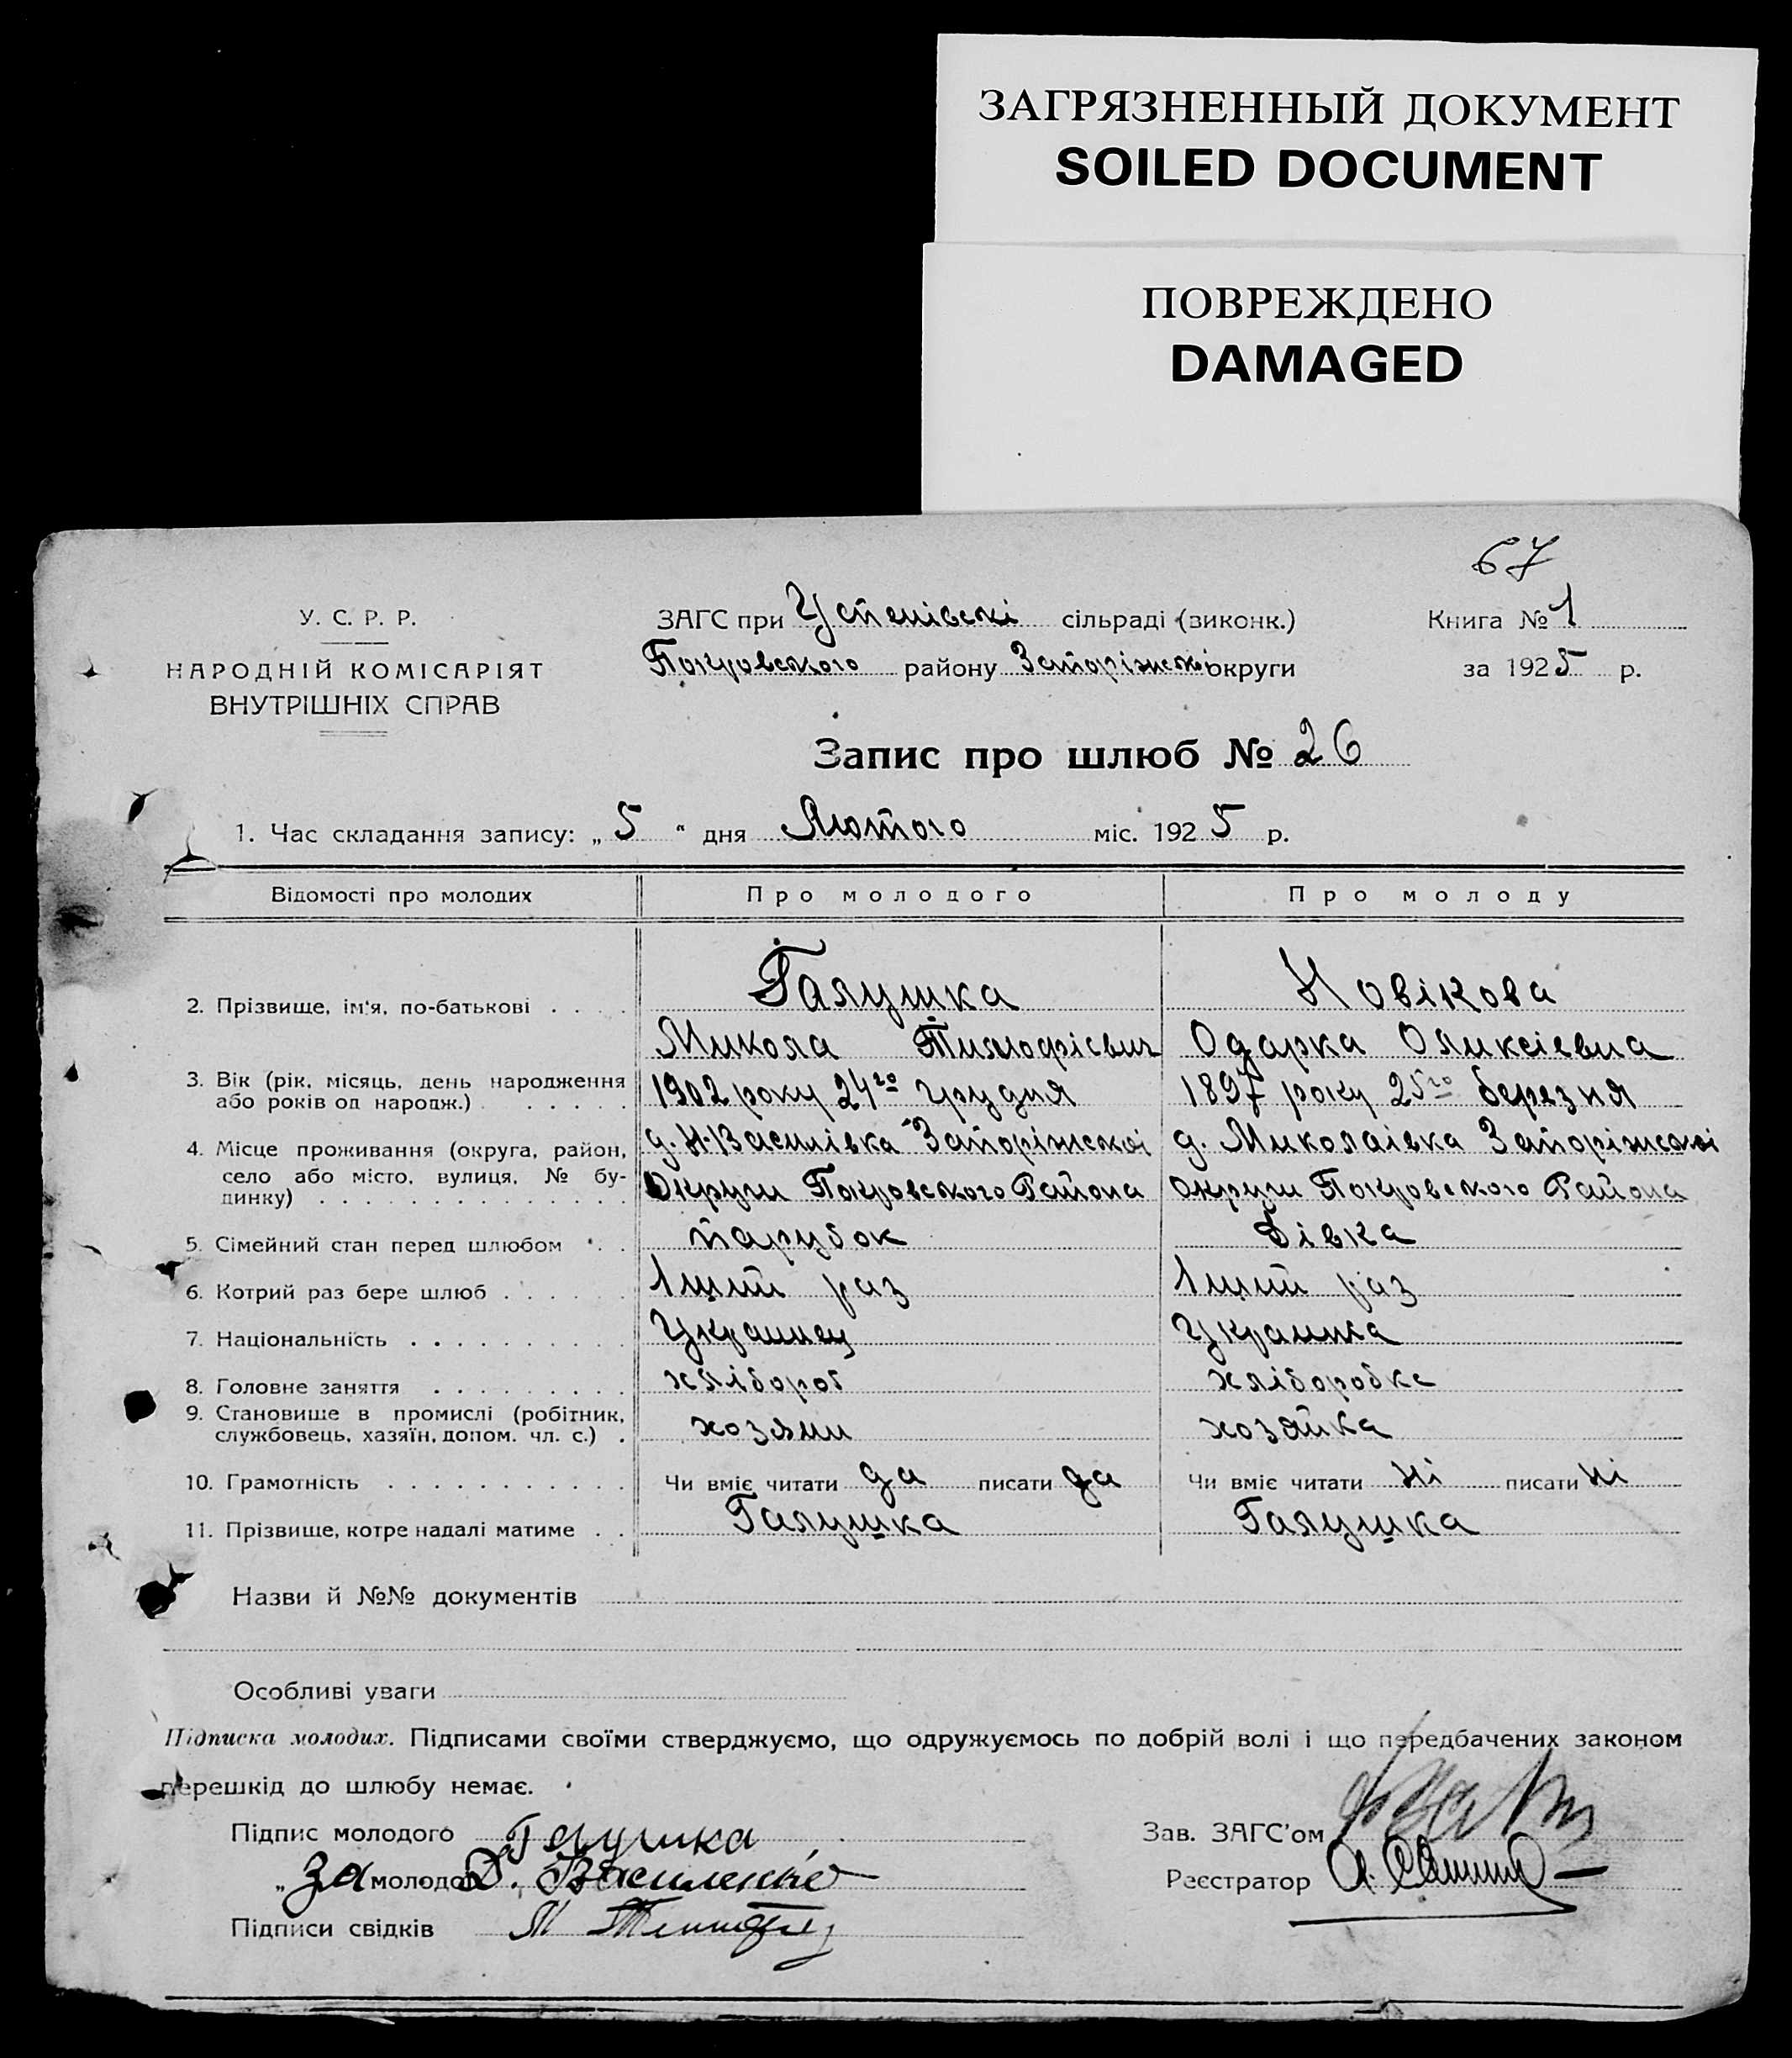 ЗАГРЯЗНЕННЫЙ ДОКУМЕНТ
SOILED DOCUMENT
ПОВРЕЖДЕНО
DAMAGED
67
У. С. Р. Р.
НАРОДНІЙ КОМІСАРІЯТ
ВНУТРІШНІХ СПРАВ
ЗАГС при Успенівскі сільраді (виконк.)
Покровского району Запоріжскої округи
Книга № 1
за 1925 р.
Запис про шлюб № 26
1. Час складання запису: „ 5 “ дня Лютого міс. 1925 р.
Відомості про молодих Про молодого Про молоду
2. Прізвище, ім'я, по-батькові . . . . Галушка Новікова
Микола Тимофієвич Одарка Оликсіевна
3. Вік (рік, місяць, день народження або років од народж.) . . . . . . 1902 року 24го грудня 1897 року 25го березня
4. Місце проживання (округа, район, село або місто, вулиця, № будинку) . . . . . . . . . . . . . .
д. Н-Василівка Запоріжскої д. Миколаівка Запоріжскої
Округи Покровского Района Округи Покровского Района
5. Сімейний стан перед шлюбом . . . парубок дівка
6. Котрий раз бере шлюб . . . . . . 1ший раз 1ший раз
7. Національність . . . . . . . . . . Украинец Украинка
8. Головне заняття . . . . . . . . . хлібороб хліборобка
9. Становище в промислі (робітник, службовець, хазяїн, допом. чл. с.) . хозяин хозяйка
10. Грамотність . . . . . . . . . . . Чи вміє читати да писати да Чи вміє читати ні писати ні
11. Прізвище, котре надалі матиме . . Галушка Галушка
Назви й №№ документів
Особливі уваги
Підписка молодих. Підписами своїми стверджуємо, що одружуємось по добрій волі і що передбачених законом
перешкід до шлюбу немає.
Підпис молодого Галушка
„ за молодої Д. Василенко
Підписи свідків
Зав. ЗАГС'ом
Реєстратор